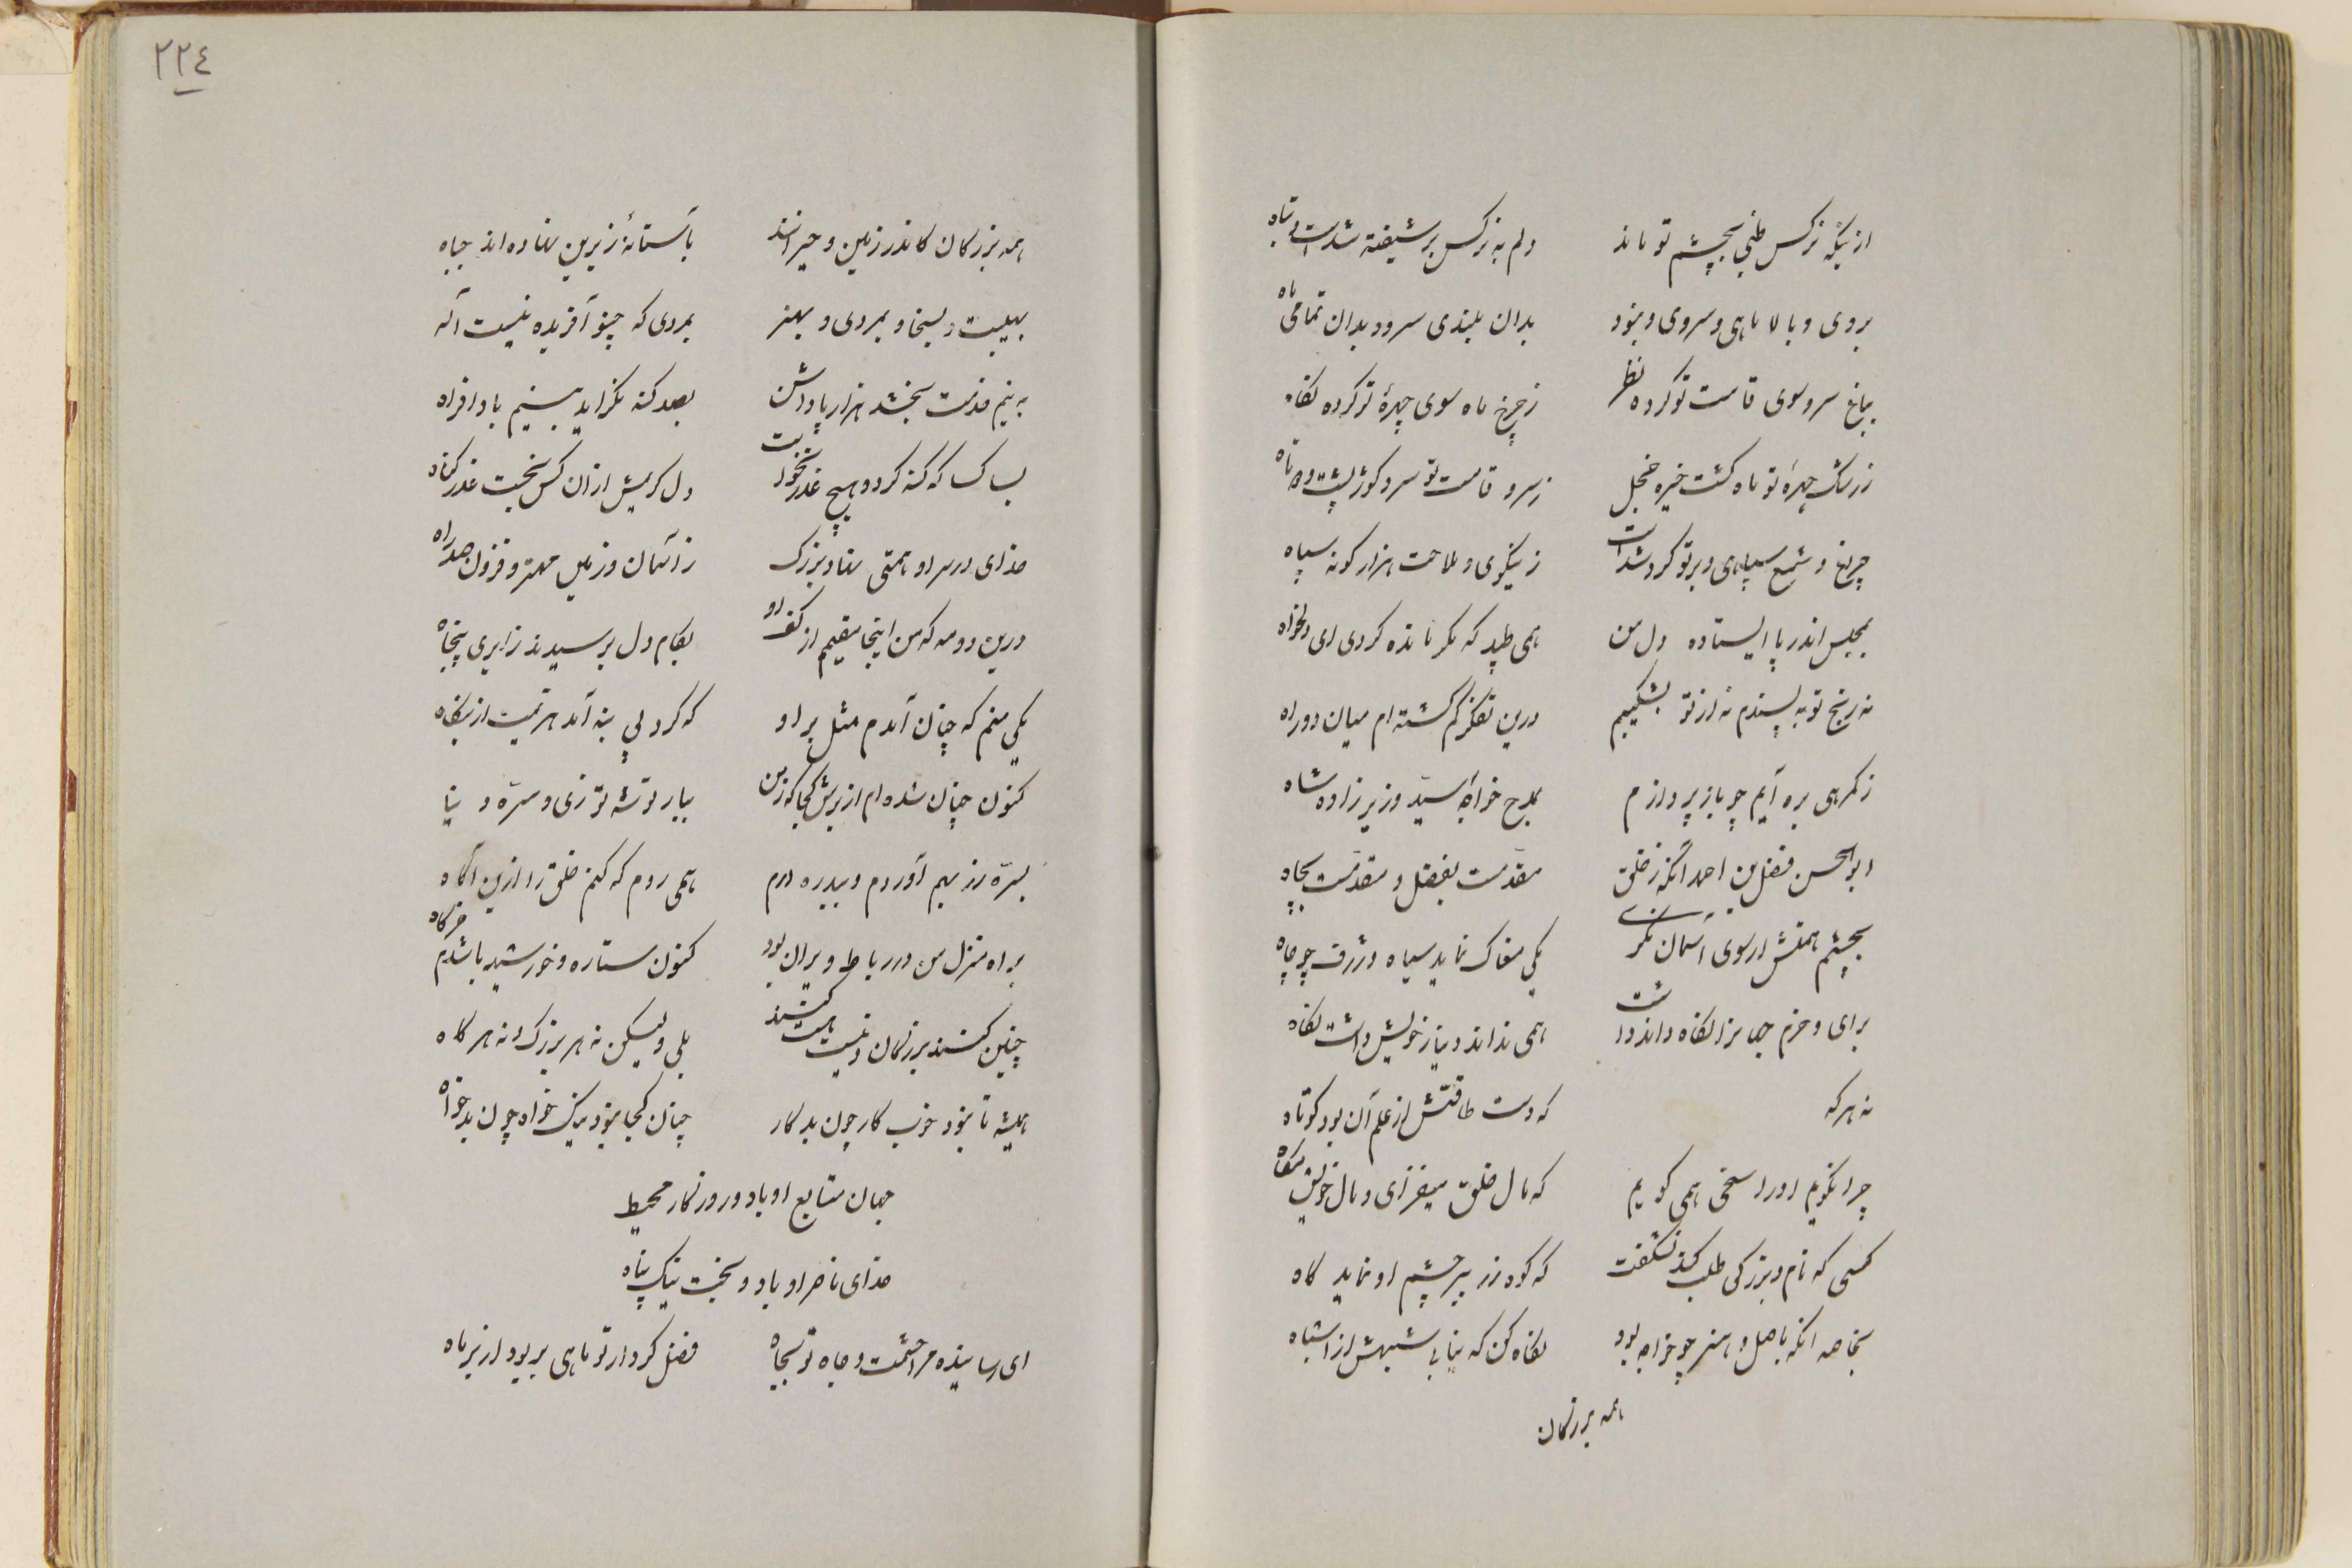 از نیکه نرگس طبی بچشم تو ماند دلم به نرگس بر شیفته شدست و تباه
بروی و بالا ماهی و سروی و نبود بدان بلندی سرو و بدان تمامی ماه
بباغ سرو سوی قامت تو کرده نظر ز چرخ ماه سوی چهرهٔ تو کرده نگاه
ز رشک چهرهٔ تو ماه گشت خیره خجل ز سرو قامت تو سرو کوژ پشت و دوتاه
چراغ و شمع سپاهی و بر تو گرد شدست ز نیکوی و ملاحت هزار گونه سپاه
بمجلس اندر پا ایستاده دل من همی طپد که مگر مانده گردی ای دلخواه
نه رنج تو به پسندم نه از تو بشکیبم درین تفکر گم گشته‌ام میان دو راه
ز گمرهی بره آیم چو باز پردازم بمدح خواجهٔ سید وزیر زادهٔ شاه
ابوالحسن فضل بن احمد آنکه ز خلق مقدمست بفضل و مقدمست بجاه
بچشم همتش ار سوی آسمان نگری یکی مغاک نماید سیاه و ژرف چو چاه
برای و حزم جهانرا نگاه داند داشت همی نداند دینار خویش داشت نگاه
نه هر که که دست طاقتش از علم آن بود کوتاه
چرا نگویم او را سخی همی گویم که مال خلق میفزای و مال خویش بکاه
کسی که نام و بزرگی طلب کند نشگفت که کوه زر ببر چشم او نماید کاه
بخاصه آنکه باصل و هنر چو خواجه بود نگاه کن که نیابی شبیهش از اشباه
همه بزرگان
٢٢٤
همه بزرگان کاندر زمین و حیرانند بآستانهٔ زیرین نهاده‌اند جباه
بهیبت و بسخا و بمردی و بهنر بمردی که چنو آفریده نیست آله
به نیم خدمت بخشد هزار پاداشن بصد گنه نگراید بنیم بادافراه
بسا کسا که گنه کرد و هیچ عذر نخواست دل کریمش از آن کس نجست عذر گناه
خدای در سر او همتی نهاد بزرگ ز آسمان و زمین مهتر و فزون صد راه
درین دو مه که من اینجا مقیم از کف او بکام دل برسیدند زایری پنجاه
یکی منم که چنان آمدم مثل بر او که کرد پی بنه آید هزیمت از بنگاه
کنون چنان شده‌ام از برش کجا که ز من
بسره زر بهم آوردم و ببدره درم همی روم که کنم خلق را ازین آگاه
براه منزل من در رباط ویران بود کنون ستاره و خورشید باشدم خرگاه
چنین کنند بزرگان و نیست هست کنند بلی ولیکن نه هر بزرگ و نه هر گاه
همیشه تا نبود خوب کار چون بدکار چنان کجا نبود نیک خواه چون بدخواه
جهان متابع او باد و روزگار محیط
خدای ناصر او باد و بخت نیک پناه
ای رسانیده مرا حشمت و جاه تو بجاه فضل کردار تو ماهی ببر بود از بر ماه